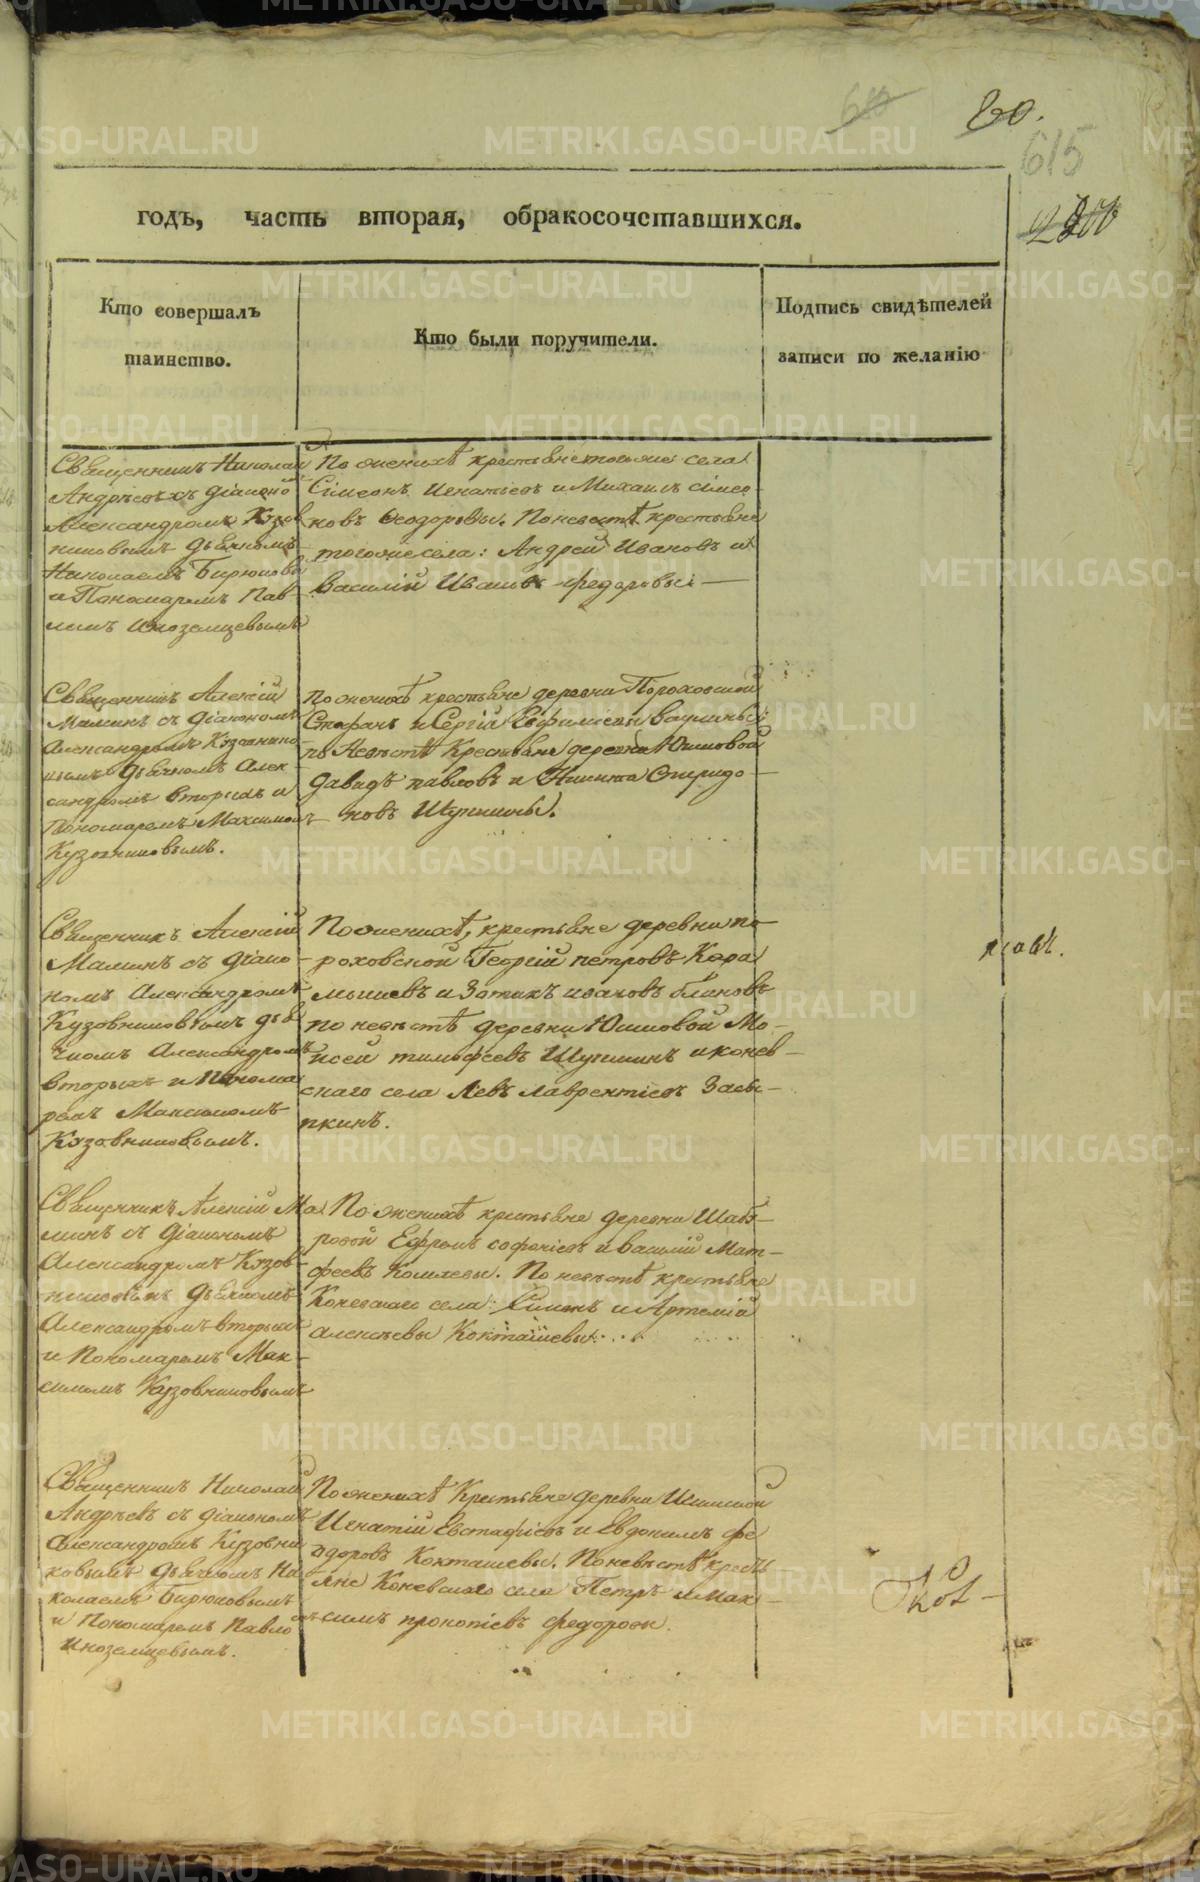 60.
615
годъ, часть вторая, обракосочетавшихся.
Кто совершалъ таинство.
Кто были поручители.
Подпись свидѣтелей записи по желанію
Священникъ Николай
Андрѣевъ съ діакономъ
Александромъ Кузов
никовымъ дьячкомъ
Николаемъ Бирюковы
и Пономаремъ Пав-
ломъ Иноземцевымъ
По женихѣ крестьяне тогоже села
Сімеонъ Игнатьевъ и Михаилъ сімео-
новъ Феодоровы. По невѣстѣ крестьяне
тогоже села: Андрей Ивановъ и
Василій Ивановъ федоровы
Священникъ Алексій
Маминъ съ діакономъ
Александромъ Кузовнико-
вымъ дьячкомъ Алек-
сандромъ Вторыхъ и
Пономаремъ Максимом
Кузовниковымъ.
По женихѣ крестьяне деревни Пороховской
Стефанъ и Сергій Евфиміевы
по Невѣстѣ Крестьяне деревни Юшковой
Давидъ павловъ и Никита Спиридо-
новъ Шупкины.
Священникъ Алексій
Маминъ съ діако-
номъ Александромъ
Кузовниковымъ дья
чкомъ Александромъ
Вторыхъ и Понома
ремъ Максимомъ
Кузовниковымъ.
По женихѣ, крестьяне деревни по-
роховской Георгій петровъ Кара
мышевъ и Зотикъ ивановъ блиновъ
по невѣстѣ деревни Юшковой Мо-
исей тимофеевъ Щупкинъ и конев-
скаго села Левъ лаврентіевъ Засы-
пкинъ.
Священникъ Алексій Ма
минъ съ діакономъ
Александромъ Кузов-
никовымъ дьячкомъ
Александромъ вторыхъ
и Пономаремъ Мак-
симомъ Кузовниковымъ
По женихѣ крестьяне деревни Шаб-
ровой Ефремъ софоніевъ и василій Мат-
феевъ Комлевы. По невѣстѣ крестьяне
Коневскаго села: Симонъ и Артемій
алексѣевы Кокташевы
Священникъ Николай
Андрѣевъ съ діакономъ
Александромъ Кузовни
ковымъ дьячкомъ Ни
колаемъ Бирюковымъ
и Пономаремъ Павло
Иноземцевымъ.
По женихѣ Крестьяне деревни
Игнатій Евстафіевъ и Евдокимъ фе
одоровъ Кокташевы. По невѣстѣ кресть
яне Коневскаго села Петръ и Мак-
симъ прокопіевъ федоровы.
METRIKI.GASO-URAL.RU